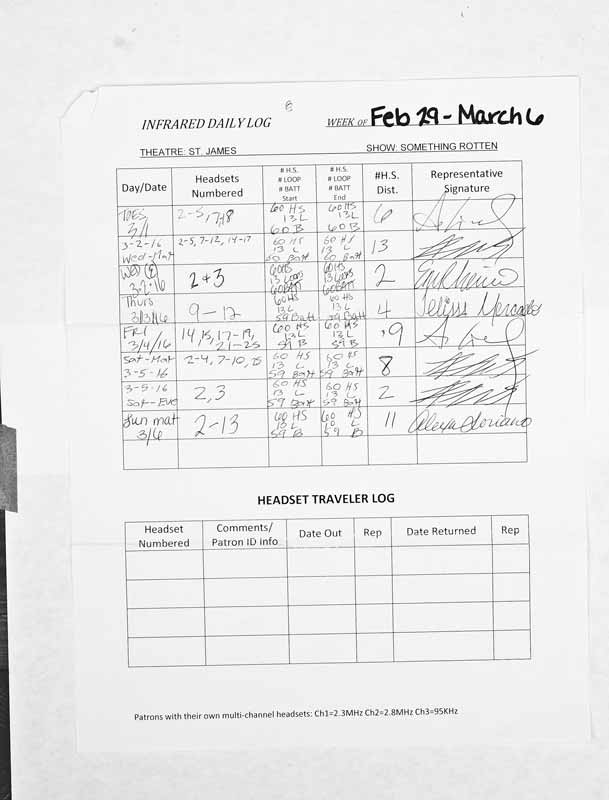 INFRARED DAILY LOG WEEK OF Feb 29 - March 6
THEATRE: ST. JAMES SHOW: SOMETHING ROTTEN
Day/Date Headsets Numbered # H.S. # LOOP # BATT Start # H.S. # LOOP # BATT End #H.S. Dist. Representative Signature
TUES 3/1 2-5, 7, 8 60 HS 13 L 60 B 60 HS 13 L 60 B 6
3-2-16 Wed-Mat 2-5, 7-12, 14-17 60 HS 13 L 60 Batt 60 HS 13 L 60 Batt 13
Wed 3-2-16 2+3 60HS 13 Loops 60BATT 60HS 13 Loops 60BATT 2
Thurs 3/3/16 9-12 60HS 13L 59 Batt 60 HS 13L 59 Batt 4
FRI 3/4/16 14, 15, 17-19, 21-25 60 HS 13L 59 B 60 HS 13L 59 B 9
Sat-Mat 3-5-16 2-4, 7-10, 60 HS 13 L 59 Batt 60 HS 13 L 59 Batt 8
3-5-16 Sat-Eve 2,3 60 HS 13 L 59 Batt 60 HS 13 L 59 Batt 2
Sun mat 3/6 2-13 60 HS 13 L 59 B 60 HS L 59 B 11 Alexa Soriano
HEADSET TRAVELER LOG
Headset Numbered Comments/ Patron ID info Date Out Rep Date Returned Rep
Patrons with their own multi-channel headsets: Ch1=2.3MHz Ch2=2.8MHz Ch3=95KHz